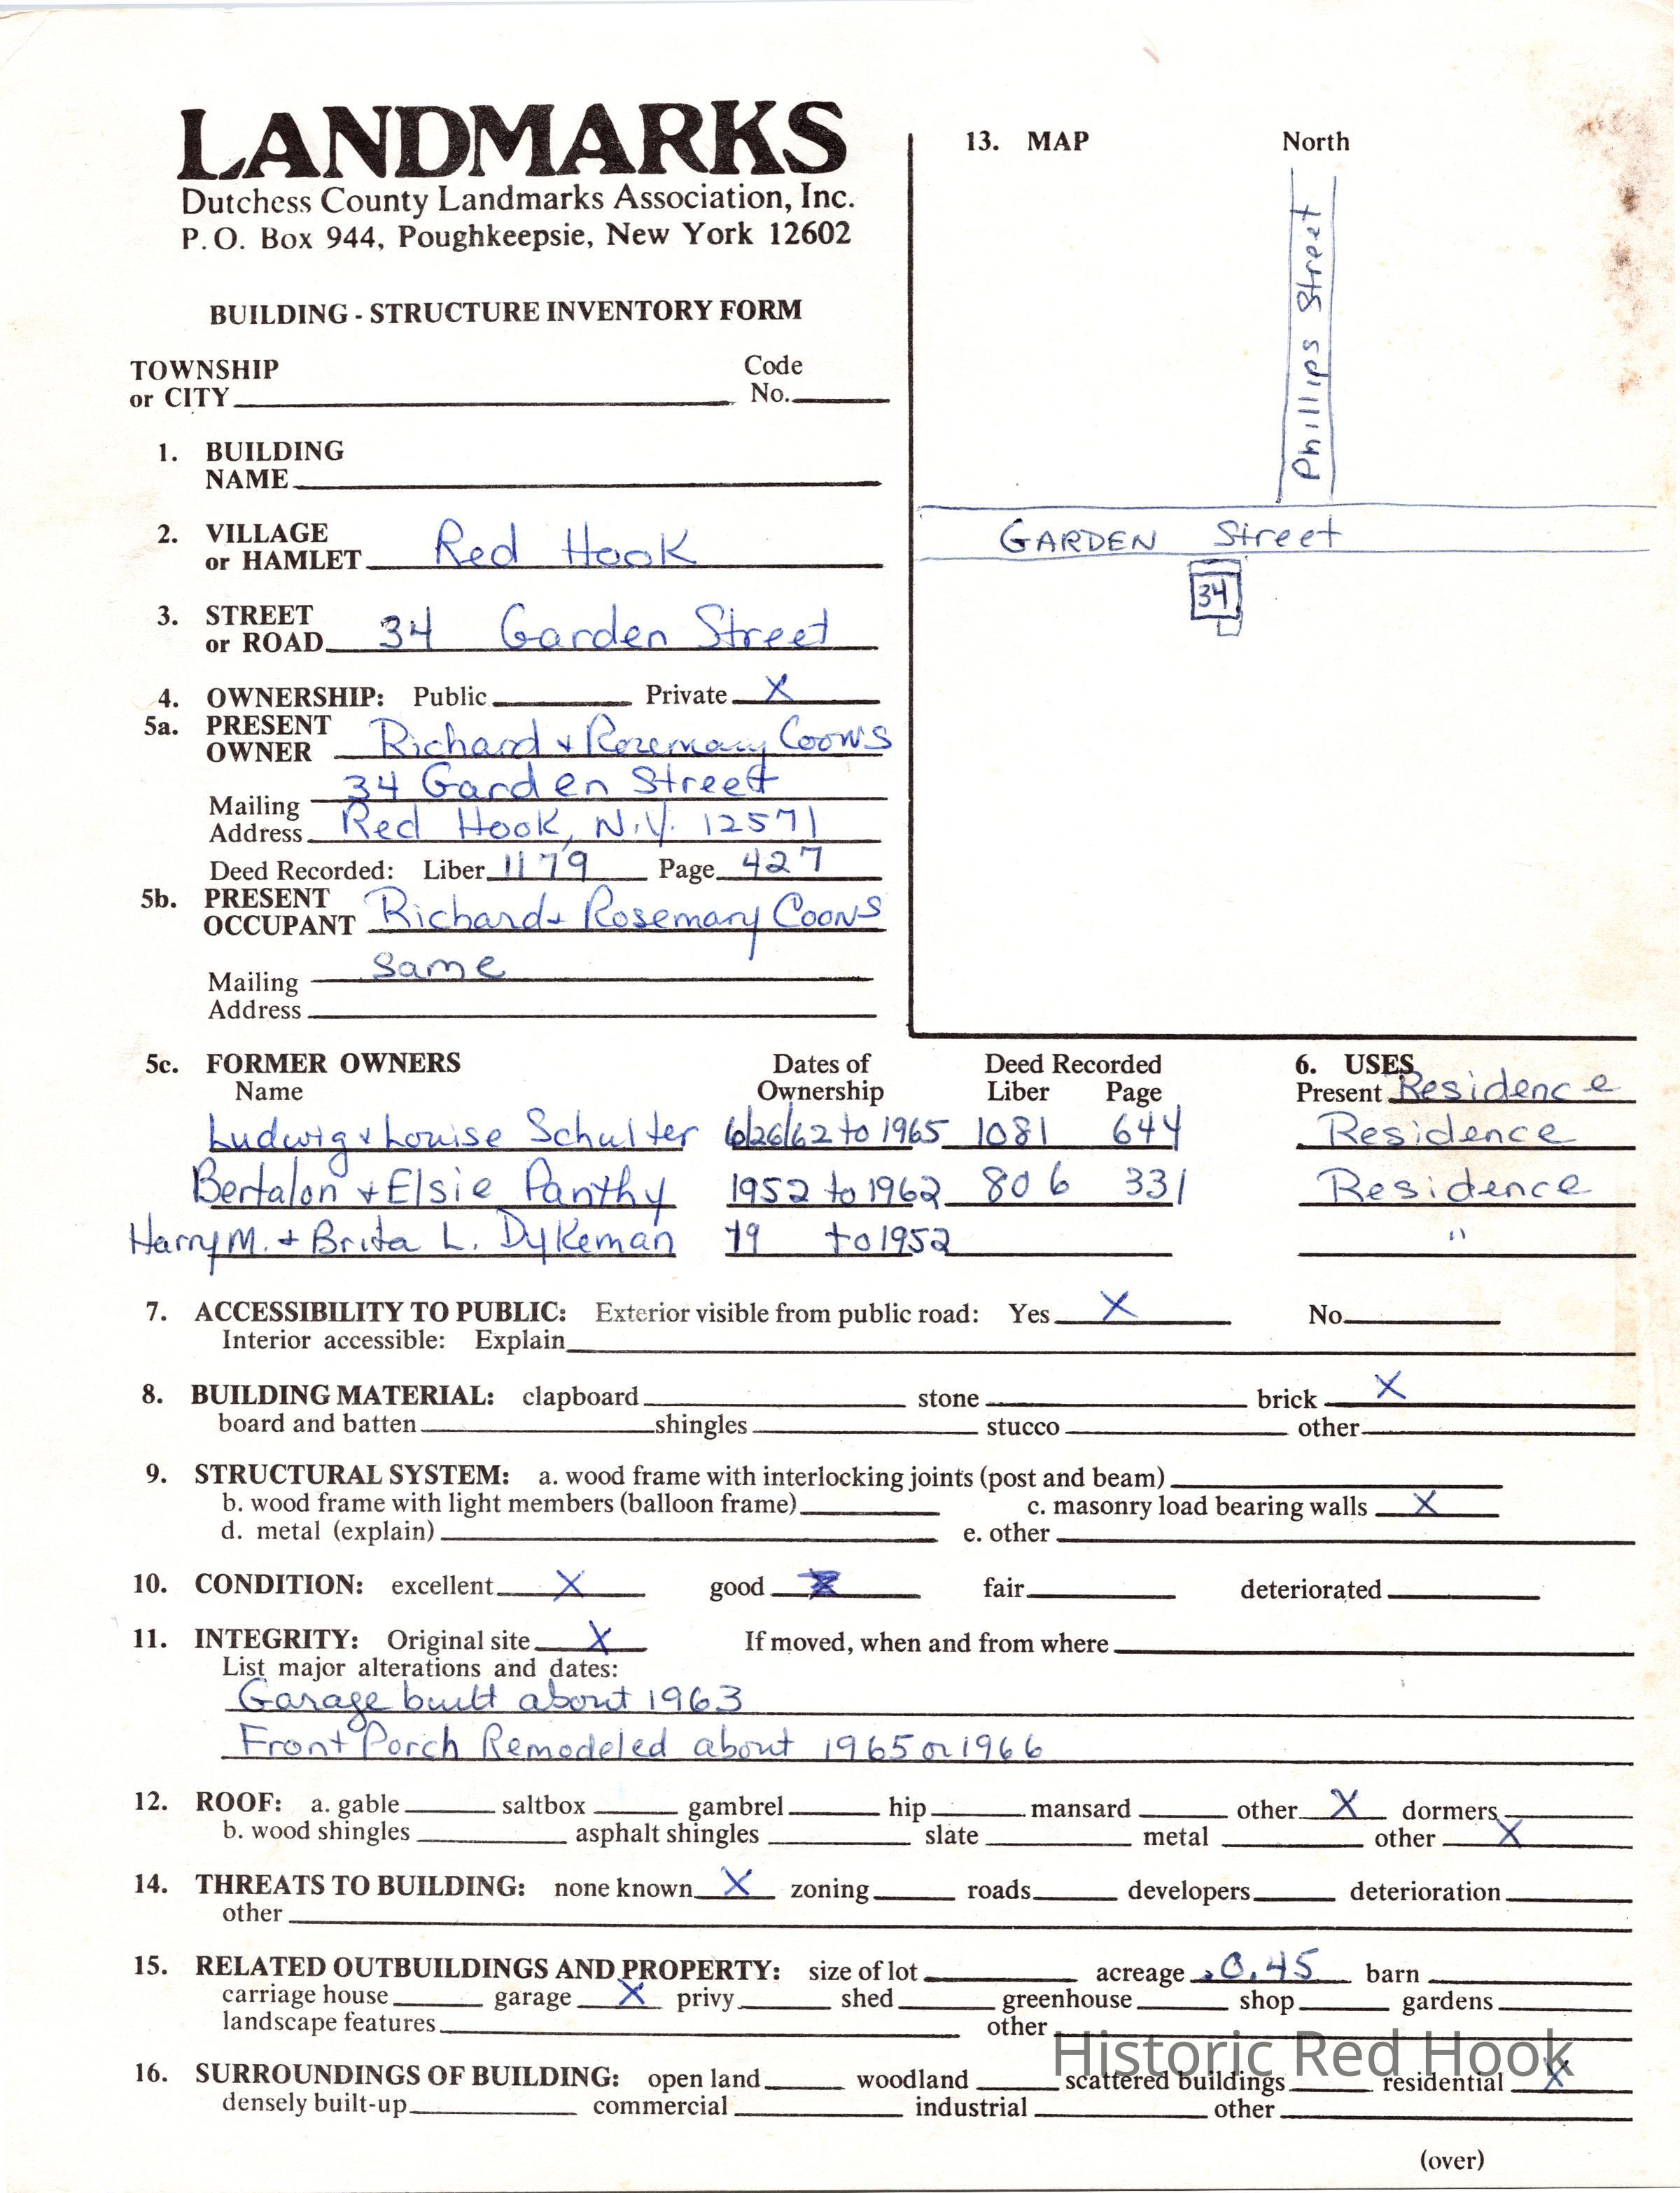 LANDMARKS
Dutchess County Landmarks Association, Inc.
P.O. Box 944, Poughkeepsie, New York 12602
BUILDING - STRUCTURE INVENTORY FORM
TOWNSHIP or CITY Code No.
1. BUILDING NAME
2. VILLAGE or HAMLET Red Hook
3. STREET or ROAD 34 Garden Street
4. OWNERSHIP: Public Private X
5a. PRESENT OWNER Richard + Rozemary Coons
34 Garden Street
Mailing Address Red Hook, N.Y. 12571
Deed Recorded: Liber 1179 Page 427
5b. PRESENT OCCUPANT Richard + Rosemary Coons
Mailing Address same
13. MAP North
Phillips Street
GARDEN Street
34
5c. FORMER OWNERS Dates of Deed Recorded 6. USES
Name Ownership Liber Page Present Residence
Ludwig + Louise Schulter 6/26/62 to 1965 1081 644 Residence
Bertalon + Elsie Panthy 1952 to 1962 806 331 Residence
Harry M. + Brita L. Dykeman 19 to 1952 "
7. ACCESSIBILITY TO PUBLIC: Exterior visible from public road: Yes X No
Interior accessible: Explain
8. BUILDING MATERIAL: clapboard stone brick X
board and batten shingles stucco other
9. STRUCTURAL SYSTEM: a. wood frame with interlocking joints (post and beam)
b. wood frame with light members (balloon frame) c. masonry load bearing walls X
d. metal (explain) e. other
10. CONDITION: excellent X good fair deteriorated
11. INTEGRITY: Original site X If moved, when and from where
List major alterations and dates:
Garage built about 1963
Front Porch Remodeled about 1965 or 1966
12. ROOF: a. gable saltbox gambrel hip mansard other X dormers
b. wood shingles asphalt shingles slate metal other X
14. THREATS TO BUILDING: none known X zoning roads developers deterioration
other
15. RELATED OUTBUILDINGS AND PROPERTY: size of lot acreage 0.45 barn
carriage house garage X privy shed greenhouse shop gardens
landscape features other
Historic Red Hook
16. SURROUNDINGS OF BUILDING: open land woodland scattered buildings residential X
densely built-up commercial industrial other
(over)